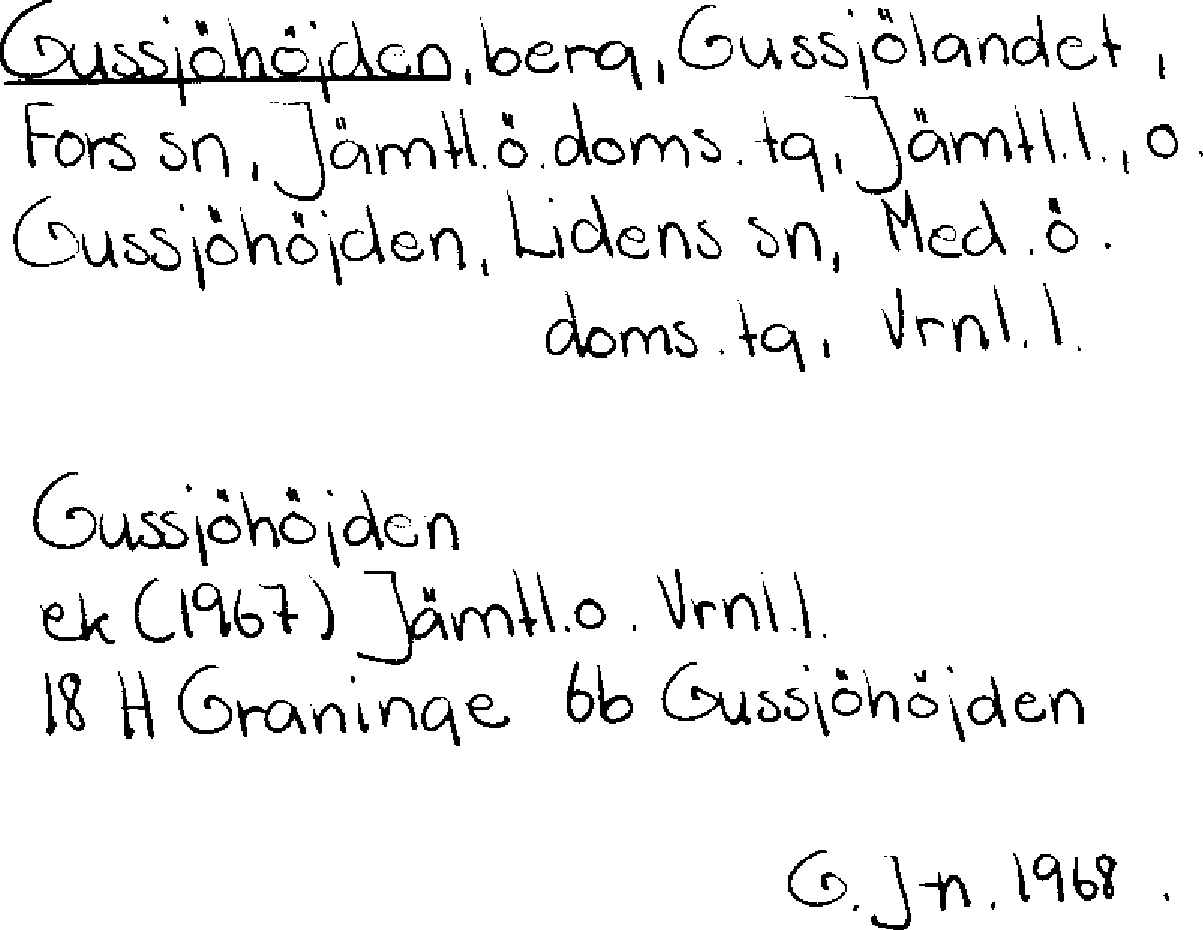 Gussjöhöjden, berg, Gussjölandet,
Fors sn, Jämtl. ö. doms. tg, Jämtl. l., o.
Gussjöhöjden, Lidens sn, Med. ö.
doms. tg, Vrnl. l.
Gussjöhöjden
ek (1967) Jämtl. o. Vrnl. l.
18 H Graninge 6b Gussjöhöjden
G. J-n. 1968.